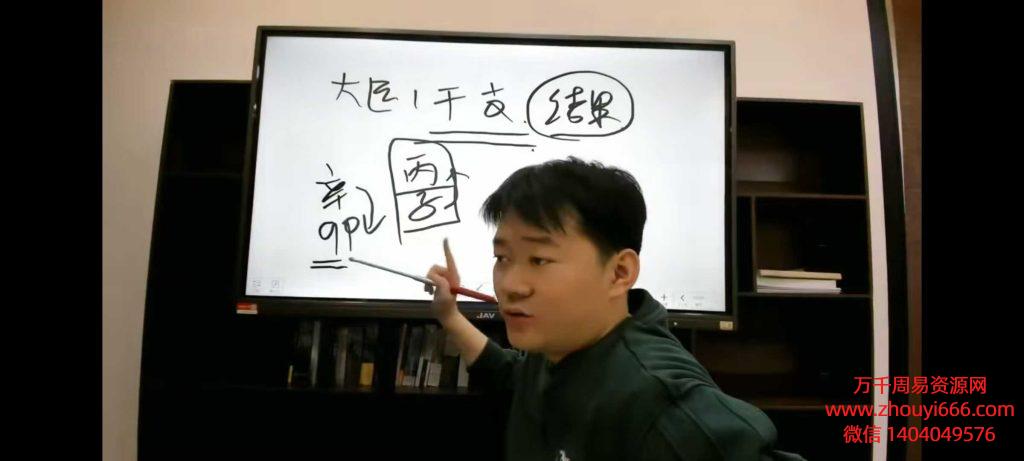 大臣 干支 结果
丙
辛
卯
JAV
万千周易资源网
www.zhouyi666.com
微信 1404049576